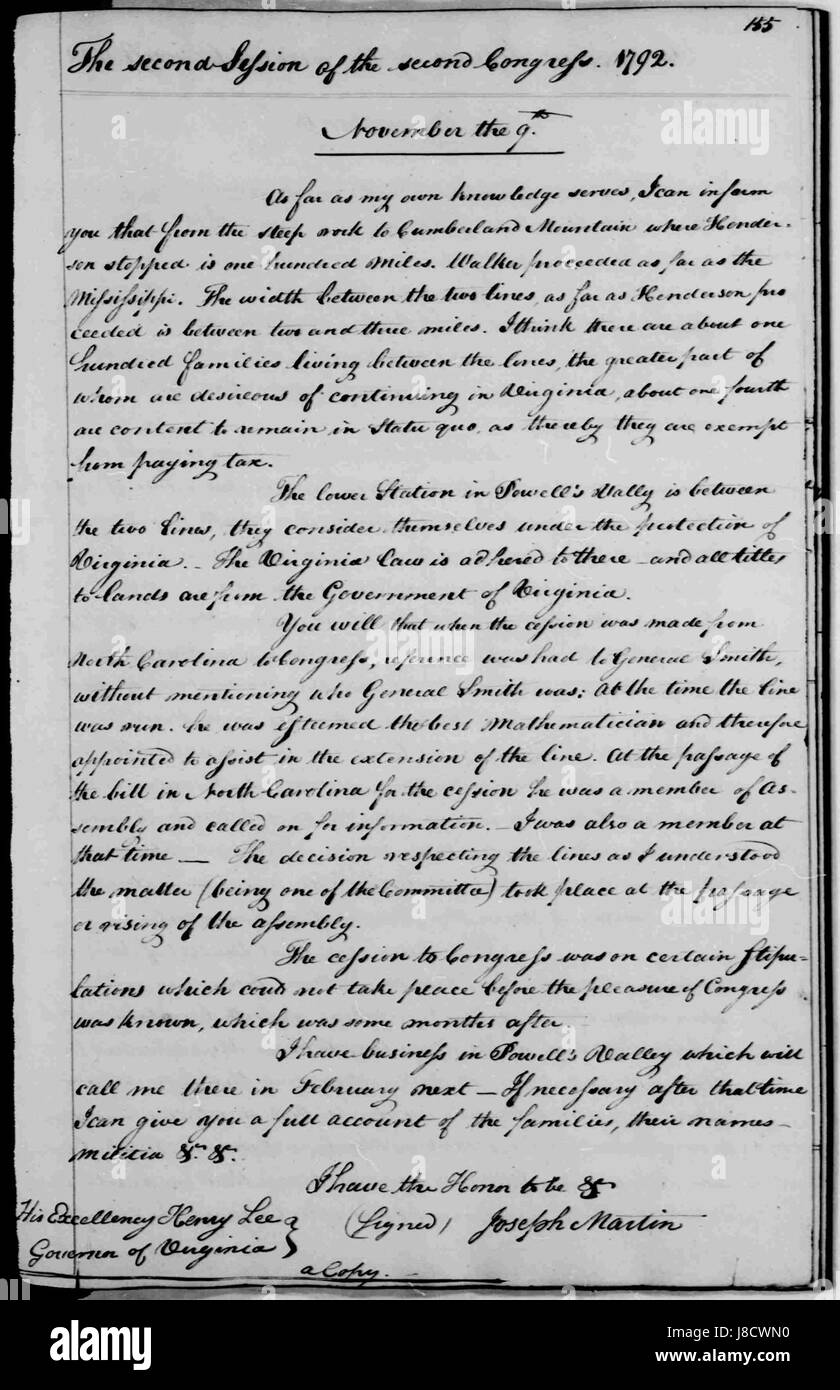 155
The second Session of the second Congress. 1792.
November the 9th.
As far as my own knowledge serves, I can inform
you that from the steep rock to Cumberland Mountain where Hender-
son stopped is one hundred miles. Walker proceeded as far as the
Mississippi. The width between the two lines, as far as Henderson pro
ceeded is between two and three miles. I think there are about one
hundred families living between the lines, the greater part of
whom are desireous of continuing in Virginia, about one fourth
are content to remain in Statu quo, as thereby they are exempt
from paying tax.
The lower Station in Powell's Vally is between
the two lines, they consider themselves under the protection of
Virginia. - The Virginia Law is adhered to there - and all titles
to lands are from the Government of Virginia.
You will that when the cession was made from
North Carolina to Congress, reference was had to General Smith,
without mentioning who General Smith was; at the time the line
was run. he was esteemed the best Mathematician and therefore
appointed to assist in the extension of the line. At the passage of
the bill in North Carolina for the cession he was a member of As-
sembly and called on for information. - I was also a member at
that time — The decision respecting the lines as I understood
the matter (being one of the Committee) took place at the passage
or rising of the assembly.
The cession to Congress was on certain stipu-
lations which could not take place before the pleasure of Congress
was known, which was some months after.
I have business in Powell's Valley which will
call me there in February next - If necessary after that time
I can give you a full account of the families, their names -
militia &c. &c.
I have the Honor to be &c
His Excellency Henry Lee } (Signed) Joseph Martin
Governor of Virginia
a Copy. -
alamy
Image ID: J8CWN0
www.alamy.com